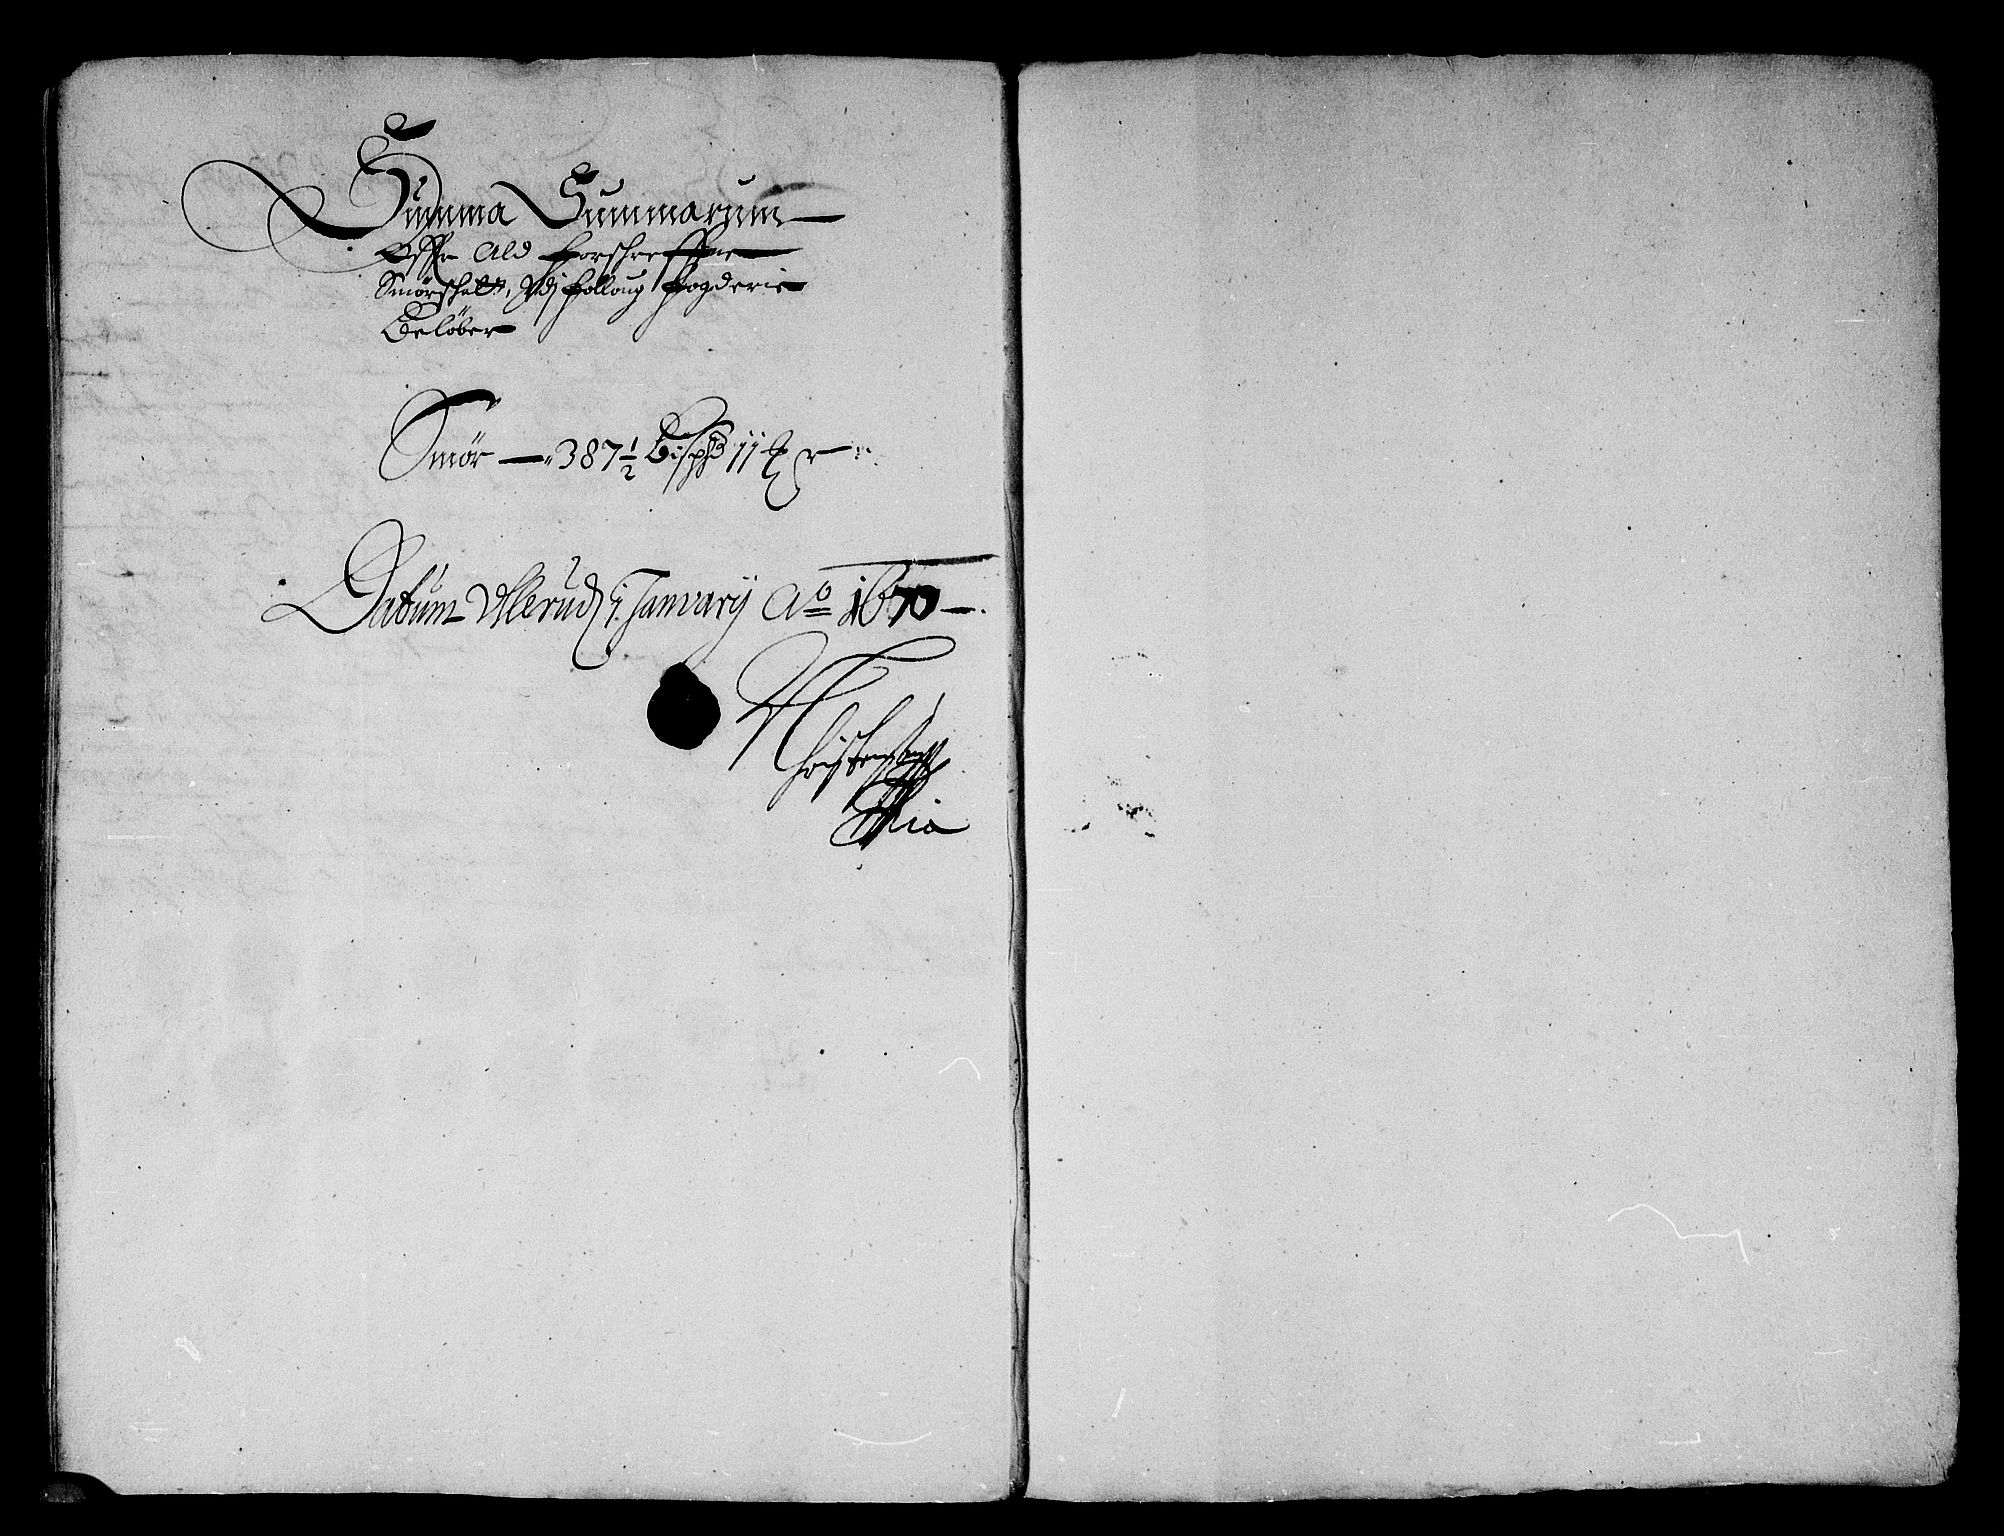 Summa Summarum
Offr Ald forschreffne
Smørschatt, Vdj folloug fogderie
Beløber
Smør — 387½ Bispd 11
Datum Ullerud 1. Januarij Ao 1670
Christensen